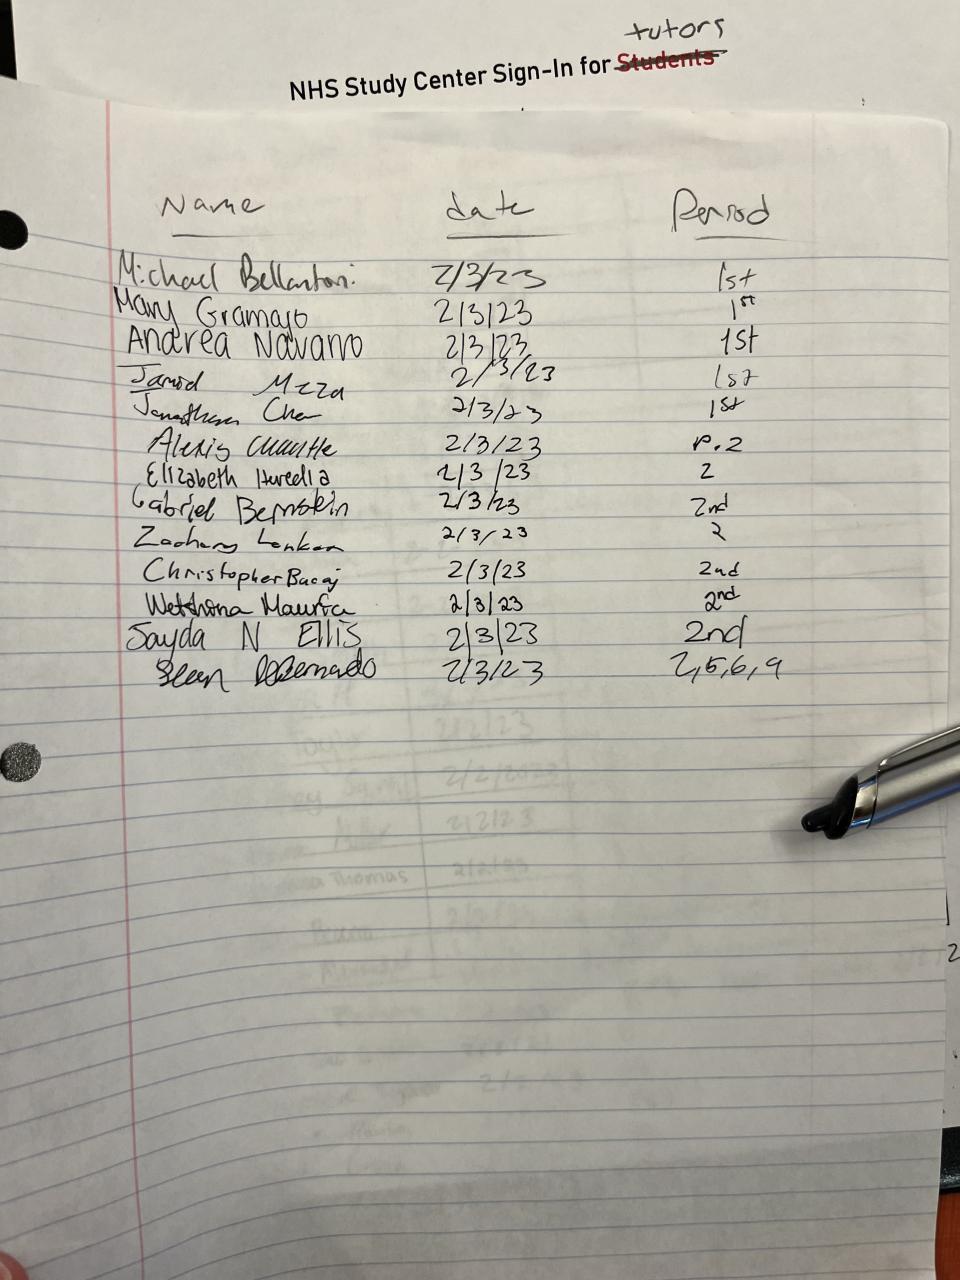 tutors
NHS Study Center Sign-In for Students
Name date Period
Michael Bellantoni 2/3/23 1st
Mary Gramajo 2/3/23 1st
Andrea Navarro 2/3/23 1st
Jarrod Meza 2/3/23 1st
Jonathan Chen 2/3/23 1st
Alexis 2/3/23 P.2
Elizabeth Heredia 2/3/23 2
Gabriel Bernstein 2/3/23 2nd
Zachary 2/3/23 2
Christopher Bacaj 2/3/23 2nd
2/3/23 2nd
Sayda N Ellis 2/3/23 2nd
Sean DeBernardo 2/3/23 2,5,6,9
Taylor 2/2/23
2/2/2023
2/2/23
Thomas 2/2/23
2